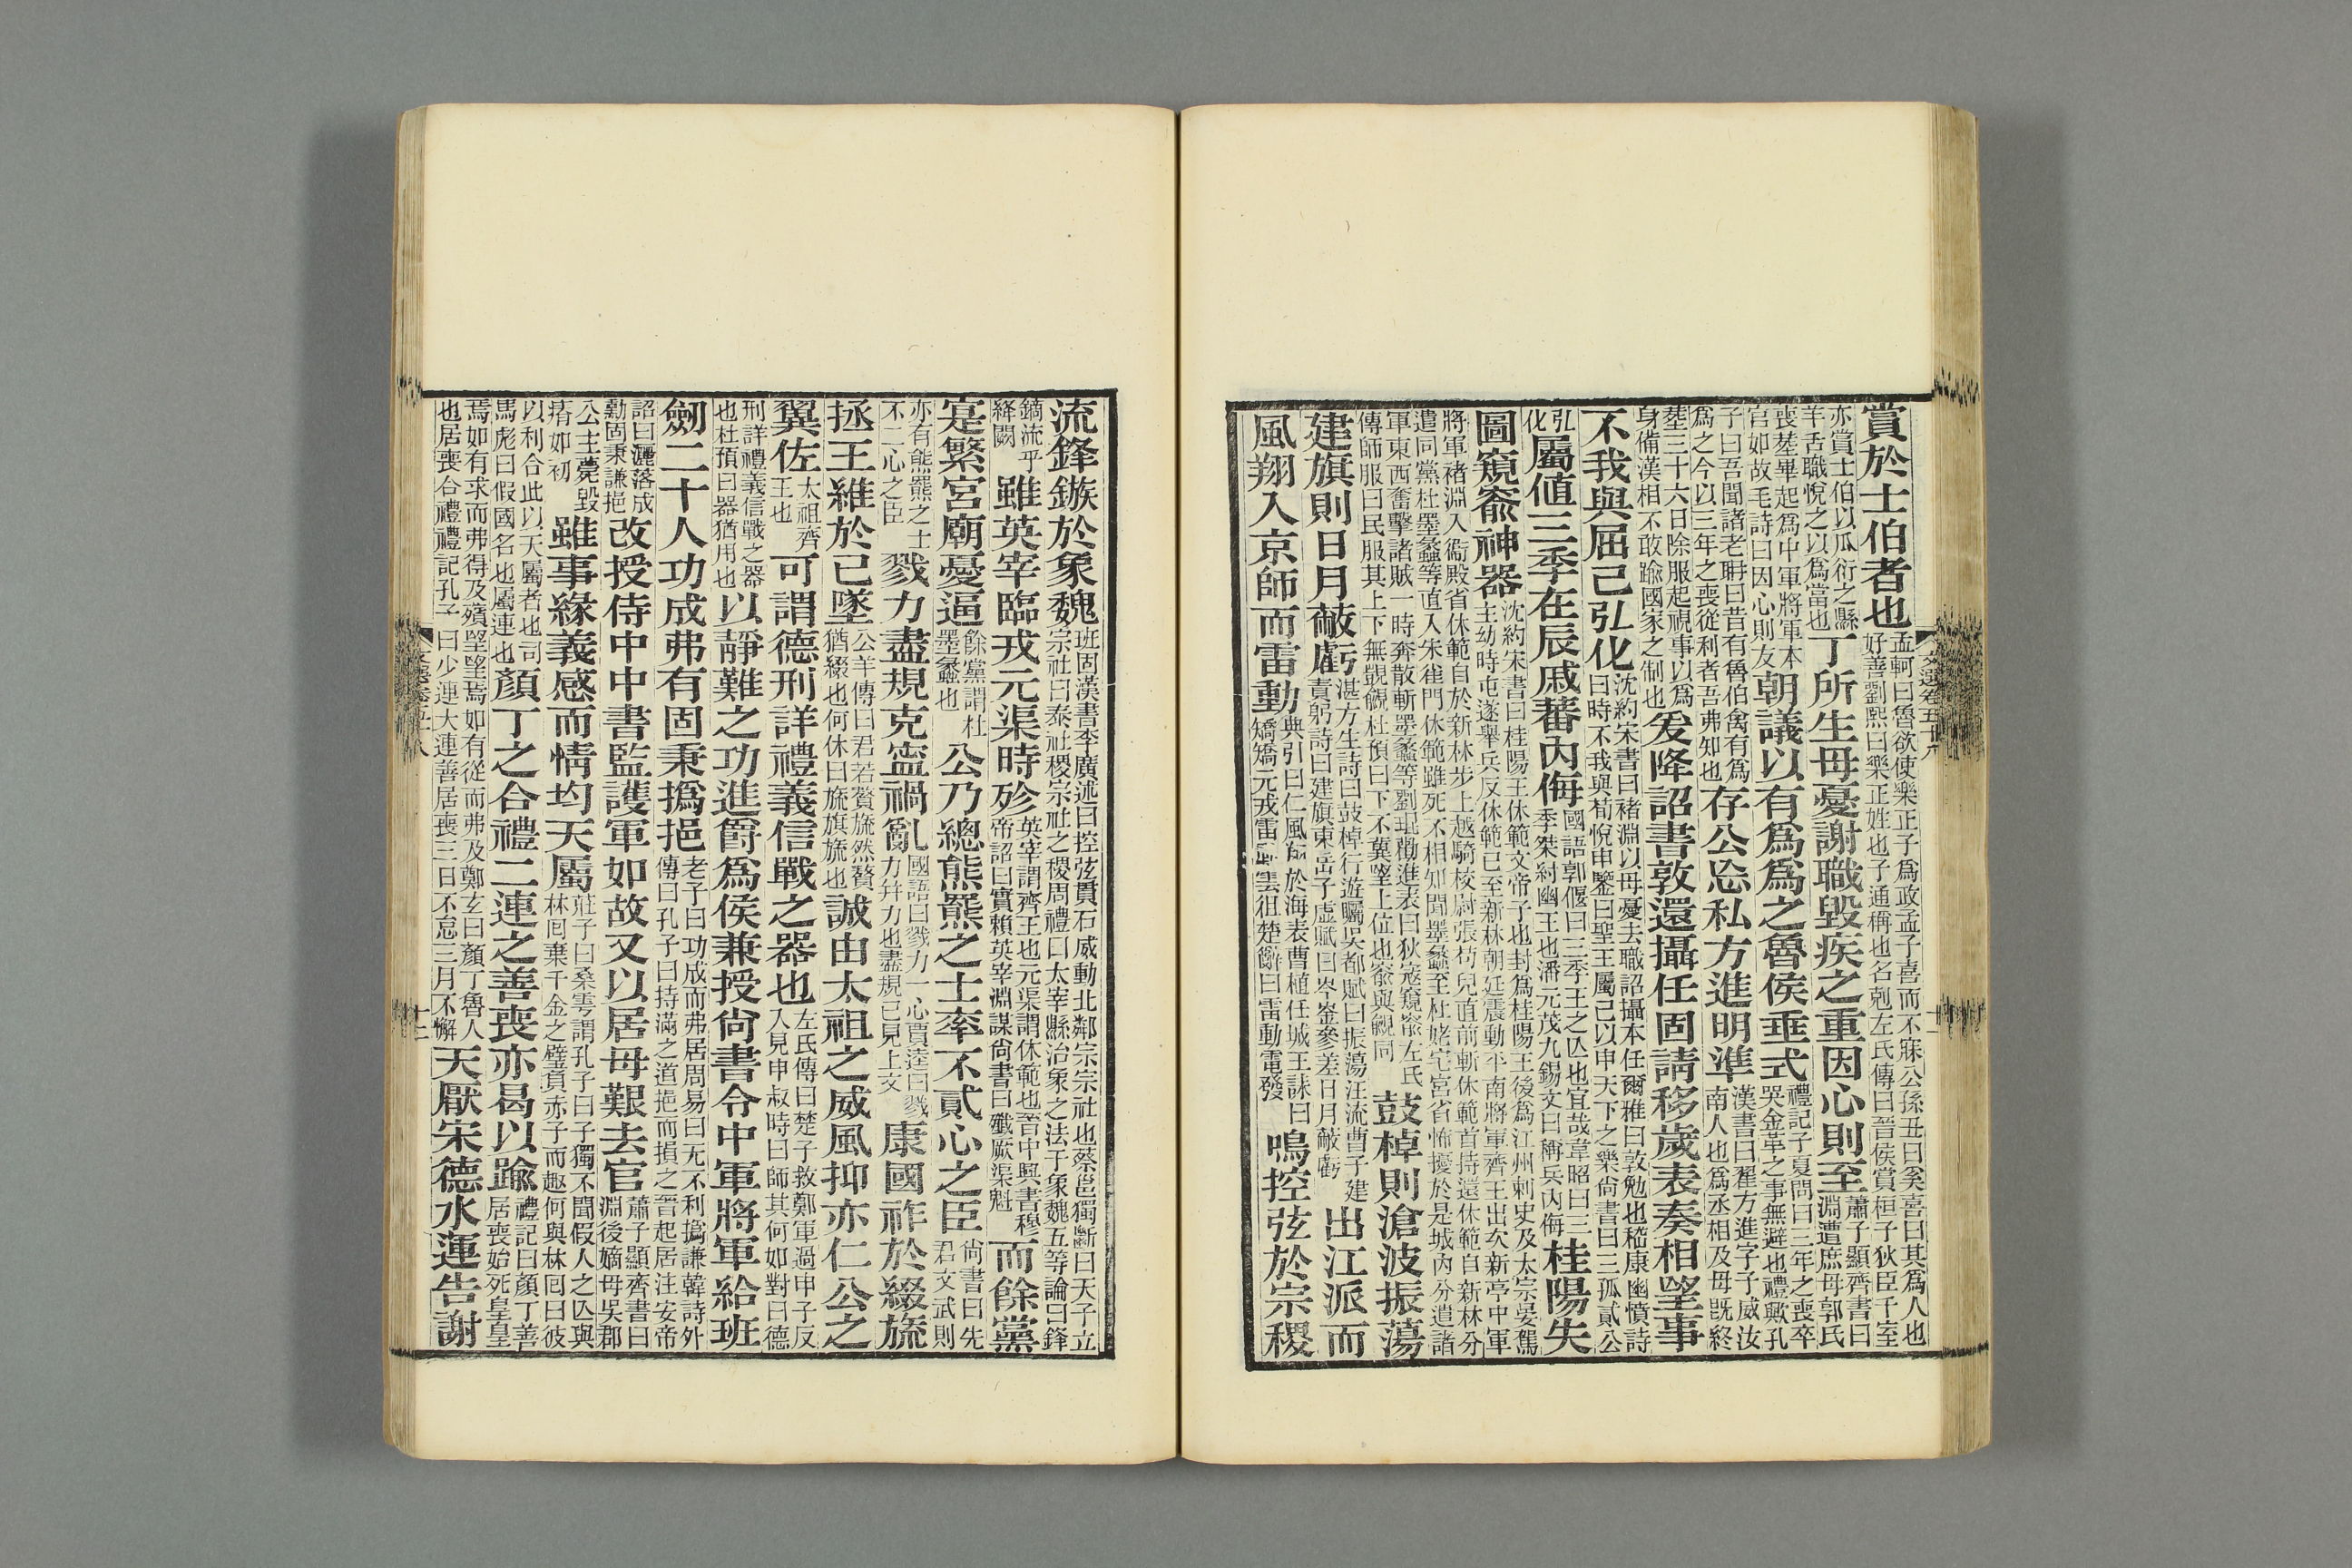 賞於士伯者也孟軻曰魯欲使樂正子爲政孟子喜而不寐公孫丑曰奚喜曰其爲人也好善劉熙曰樂正姓也子通稱也名剋左氏傳曰晉侯賞桓子狄臣千室
亦賞士伯以瓜衍之縣羊舌職悅之以爲當也丁所生母憂謝職毀疾之重因心則至蕭子顯齊書曰淵遭庶母郭氏
喪葬畢起爲中軍將軍本官如故毛詩曰因心則友朝議以有爲爲之魯侯垂式禮記子夏問曰三年之喪卒哭金革之事無避也禮歟孔
子曰吾聞諸老聃曰昔有魯伯禽有爲爲之今以三年之喪從利者吾弗知也存公忘私方進明準漢書曰翟方進字子威汝南人也爲丞相及母旣終
葬三十六日除服起視事以爲身備漢相不敢踰國家之制也爰降詔書敦還攝任固請移歲表奏相望事
不我與屈己弘化沈約宋書曰褚淵以母憂去職詔攝本任爾雅曰敦勉也嵇康幽憤詩曰時不我與荀悅申鑒曰聖王屬己以申天下之樂尚書曰三孤貳公
弘化屬値三季在辰戚蕃內侮國語郭偃曰三季王之亾也宜哉韋昭曰三季桀紂幽王也潘元茂九錫文曰稱兵內侮桂陽失
圖窺窬神器沈約宋書曰桂陽王休範文帝子也封爲桂陽王後爲江州刺史及太宗晏駕主幼時屯遂舉兵反休範已至新林朝廷震動平南將軍齊王出次新亭中軍
將軍褚淵入衞殿省休範自於新林步上越騎校尉張苟兒直前斬休範首持還休範自新林分遣同黨杜墨蠡等直入朱雀門休範雖死不相知聞墨蠡至杜姥宅宮省怖擾於是城內分遣諸
軍東西奮擊諸賊一時奔散斬墨蠡等劉琨勸進表曰狄寇窺窬左氏傳師服曰民服其上下無覬覦杜預曰下不冀望上位也窬與覦同鼓棹則滄波振蕩
建旗則日月蔽虧湛方生詩曰鼓棹行遊矚吳都賦曰振蕩汪流曹子建責躬詩曰建旗東岳子虛賦曰岑崟參差日月蔽虧出江派而
風翔入京師而雷動典引曰仁風翔於海表曹植任城王誄曰矯矯元戎雷動雲徂楚辭曰雷動電發鳴控弦於宗稷
文選卷五十八
流鋒鏃於象魏班固漢書李廣述曰控弦貫石威動北鄰宗宗社也蔡邕獨斷曰天子立宗社曰泰社稷宗社之稷周禮曰太宰縣治象之法于象魏五等論曰鋒
鏑流乎絳闕雖英宰臨戎元渠時殄英宰謂齊王也元渠謂休範也晉中興書穆帝詔曰實賴英宰淵謀尙書曰殲厥渠魁而餘黨
寔繁宮廟憂逼餘黨謂杜墨蠡也公乃總熊羆之士率不貳心之臣尙書曰先君文武則
亦有熊羆之士不二心之臣戮力盡規克寍禍亂國語曰戮力一心賈逵曰戮力幷力也盡規已見上文康國祚於綴旒
拯王維於已墜公羊傳曰君若贅旒然贅猶綴也何休曰旒旗旒也誠由太祖之威風抑亦仁公之
翼佐太祖齊王也可謂德刑詳禮義信戰之器也左氏傳曰楚子救鄭軍過申子反入見申叔時曰師其何如對曰德
刑詳禮義信戰之器也杜預曰器猶用也以靜難之功進爵爲侯兼授尙書令中軍將軍給班
劒二十人功成弗有固秉撝挹老子曰功成而弗居周易曰无不利撝謙韓詩外傳曰孔子曰持滿之道挹而損之晉起居注安帝
詔曰灑落成勳固秉謙挹改授侍中中書監護軍如故又以居母艱去官蕭子顯齊書曰淵後嫡母吳郡
公主薨毀瘠如初雖事緣義感而情均天屬莊子曰桑雩謂孔子曰子獨不聞假人之亾與林囘棄千金之璧負赤子而趣何與林囘曰彼
以利合此以天屬者也司馬彪曰假國名也屬連也顏丁之合禮二連之善喪亦曷以踰禮記曰顏丁善居喪始死皇皇
焉如有求而弗得及殯望望焉如有從而弗及鄭玄曰顏丁魯人也居喪合禮禮記孔子曰少連大連善居喪三日不怠三月不懈天厭宋德水運告謝